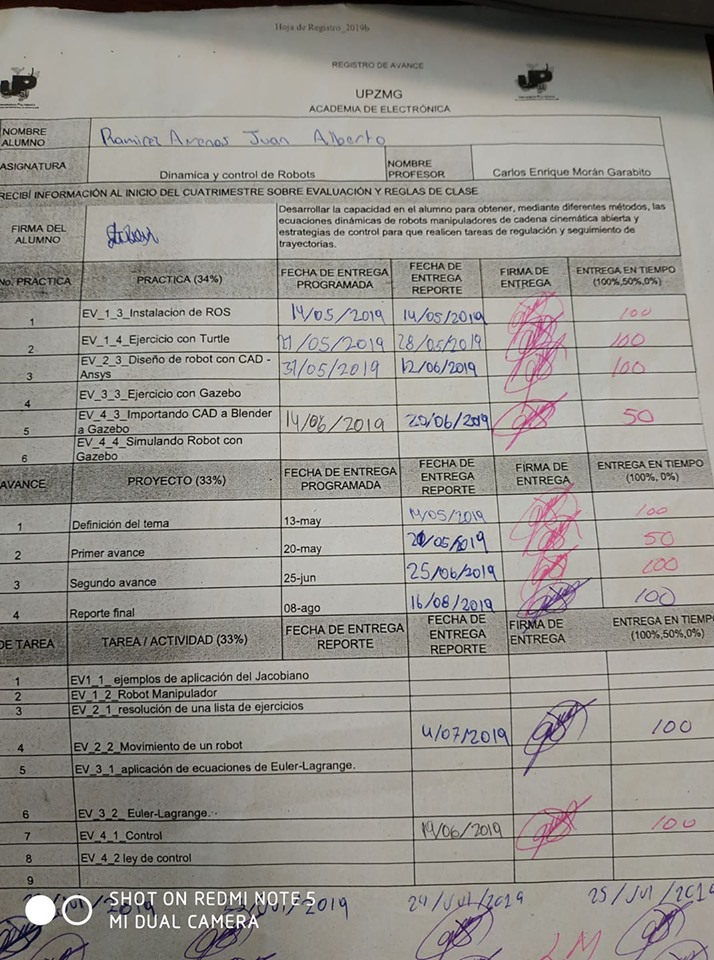 Hoja de Registro_2019b
REGISTRO DE AVANCE
UP UP
UPZMG
ACADEMIA DE ELECTRÓNICA
NOMBRE ALUMNO Ramirez Arenas Juan Alberto
ASIGNATURA Dinamica y control de Robots NOMBRE PROFESOR Carlos Enrique Morán Garabito
RECIBÍ INFORMACIÓN AL INICIO DEL CUATRIMESTRE SOBRE EVALUACIÓN Y REGLAS DE CLASE
FIRMA DEL ALUMNO
Desarrollar la capacidad en el alumno para obtener, mediante diferentes métodos, las
ecuaciones dinámicas de robots manipuladores de cadena cinemática abierta y
estrategias de control para que realicen tareas de regulación y seguimiento de
trayectorias.
No. PRÁCTICA PRACTICA (34%) FECHA DE ENTREGA PROGRAMADA FECHA DE ENTREGA REPORTE FIRMA DE ENTREGA ENTREGA EN TIEMPO (100%,50%,0%)
1 EV_1_3_Instalacion de ROS 14/05/2019 14/05/2019 100
2 EV_1_4_Ejercicio con Turtle 21/05/2019 28/05/2019 100
3 EV_2_3_Diseño de robot con CAD - Ansys 31/05/2019 12/06/2019 100
4 EV_3_3_Ejercicio con Gazebo
5 EV_4_3_Importando CAD a Blender a Gazebo 14/06/2019 20/06/2019 50
6 EV_4_4_Simulando Robot con Gazebo
AVANCE PROYECTO (33%) FECHA DE ENTREGA PROGRAMADA FECHA DE ENTREGA REPORTE FIRMA DE ENTREGA ENTREGA EN TIEMPO (100%, 0%)
1 Definición del tema 13-may 14/05/2019 100
2 Primer avance 20-may /05/2019 50
3 Segundo avance 25-jun 25/06/2019 100
4 Reporte final 08-ago 16/08/2019 100
DE TAREA TAREA / ACTIVIDAD (33%) FECHA DE ENTREGA REPORTE FECHA DE ENTREGA REPORTE FIRMA DE ENTREGA ENTREGA EN TIEMPO (100%,50%,0%)
1 EV1_1_ ejemplos de aplicación del Jacobiano
2 EV_1_2_Robot Manipulador
3 EV_2_1_resolución de una lista de ejercicios
4 EV_2_2_Movimiento de un robot 4/07/2019 100
5 EV_3_1_aplicación de ecuaciones de Euler-Lagrange.
6 EV_3_2_ Euler-Lagrange.
7 EV_4_1_Control 19/06/2019 100
8 EV_4_2 ley de control
9
/Jul/2019 /Jul/2019 24/Jul/2019 25/Jul/2019
SHOT ON REDMI NOTE 5
MI DUAL CAMERA